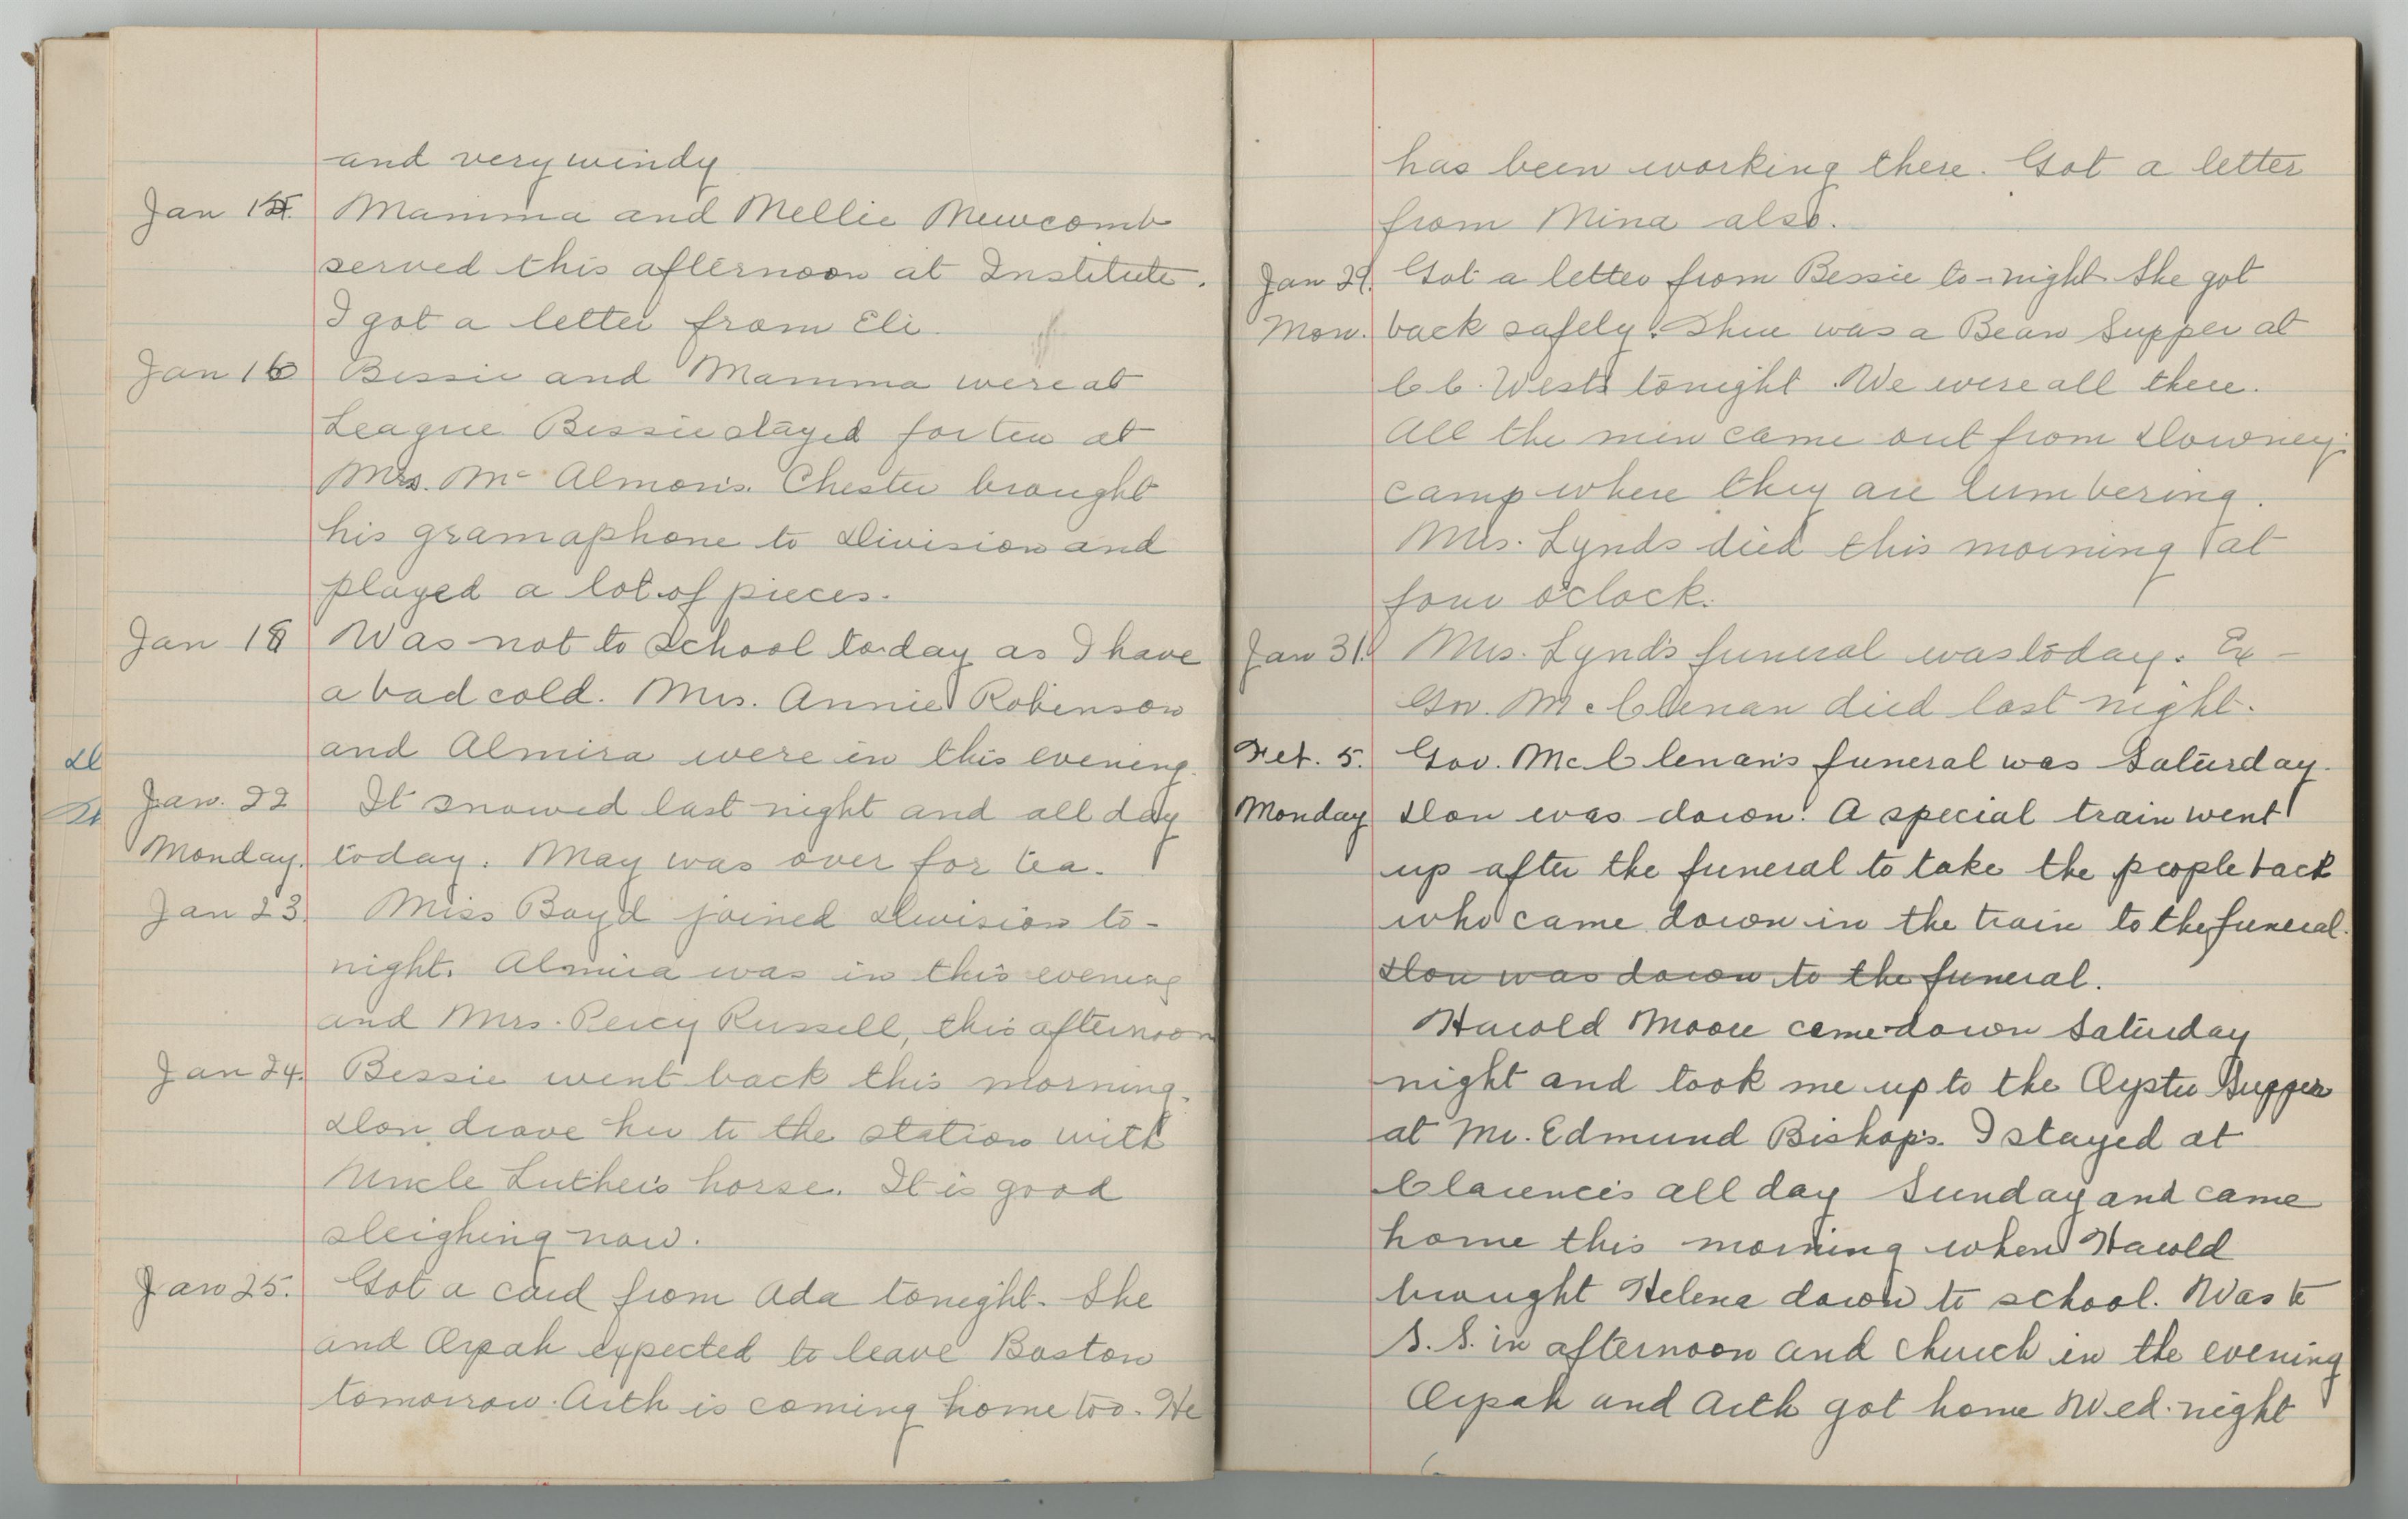 and very windy
Jan 15. Mamma and Nellie Newcomb
served this afternoon at Institute.
I got a letter from Eli.
Jan 16 Bessie and Mamma were at
League Bessie stayed for tea at
Mrs. Mc Almon's. Chester brought
his gramaphone to Division and
played a lot of pieces.
Jan 18 Was not to School to-day as I have
a bad cold. Mrs. Annie Robinson
and Almira were in this evening.
Jan. 22 It snowed last night and all day
Monday. today. May was over for tea.
Jan 23. Miss Boyd joined Division to-
night. Almira was in this evening
and Mrs. Percy Russell, this afternoon
Jan 24. Bessie went back this morning.
Don drove her to the station with
Uncle Luther's horse. It is good
sleighing now.
Jan 25. Got a card from Ada tonight. She
and Orpah expected to leave Boston
tomorrow. Arth is coming home too. He
has been working there. Got a letter
from Mina also.
Jan 29. Got a letter from Bessie to-night She got
Mon. back safely. There was a Bean Supper at
C.C. West's tonight. We were all there.
All the men came out from Downey
camp where they are lumbering.
Mrs. Lynds died this morning at
four o'clock.
Jan 31. Mrs. Lynd's funeral was today. Ex-
Gov. McClenan died last night.
Feb. 5. Gov. McClenan's funeral was Saturday.
Monday Don was down. A special train went
up after the funeral to take the people back
who came down in the train to the funeral.
Don was down to the funeral.
Harold Moore came down Saturday
night and took me up to the Oyster Supper
at Mr. Edmund Bishop's. I stayed at
Clarence's all day Sunday and came
home this morning when Harold
brought Helena down to school. Was to
S.S. in afternoon and church in the evening
Orpah and Arth got home Wed. night